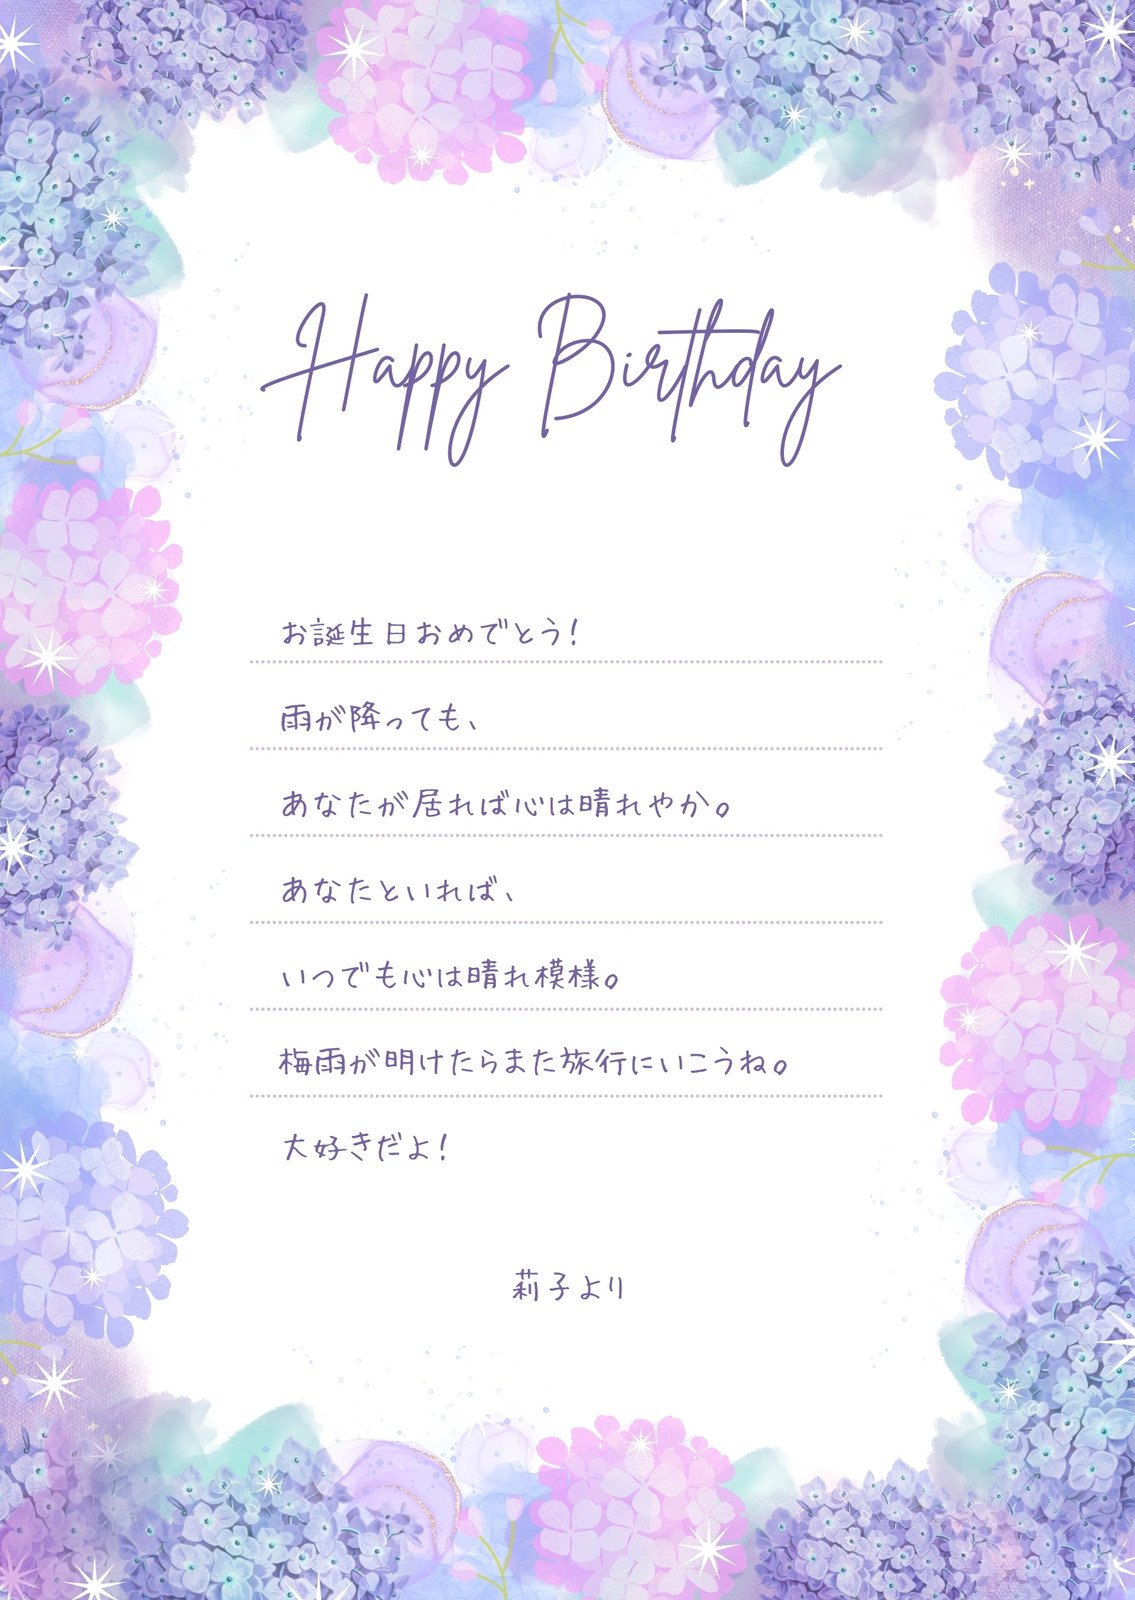 Happy Birthday
お誕生日おめでとう！
雨が降っても、
あなたが居れば心は晴れやか。
あなたといれば、
いつでも心は晴れ模様。
梅雨が明けたらまた旅行にいこうね。
大好きだよ！
莉子より